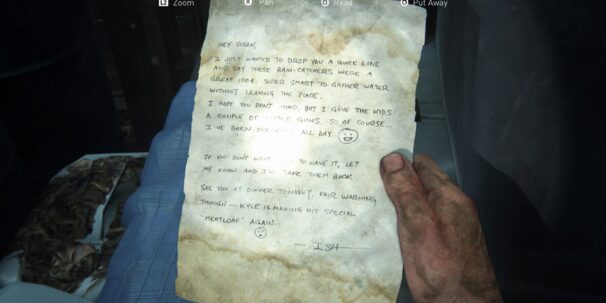 Zoom Pan Read Put Away
HEY SUSAN,
I JUST WANTED TO DROP YOU A QUICK LINE
AND SAY THESE RAIN-CATCHERS WERE A
GREAT IDEA. SUPER SMART TO GATHER WATER
WITHOUT LEAVING THE PLACE.
I HOPE YOU DON'T MIND, BUT I GAVE THE KIDS
A COUPLE OF GUNS, SO OF COURSE...
I'VE BEEN ALL DAY.
IF YOU DON'T WANT TO HAVE IT, LET
ME KNOW AND I'LL TAKE THEM BACK.
SEE YOU AT DINNER TONIGHT. FAIR WARNING
THOUGH -- KYLE IS MAKING HIS SPECIAL
"MEATLOAF" AGAIN.
- ISH